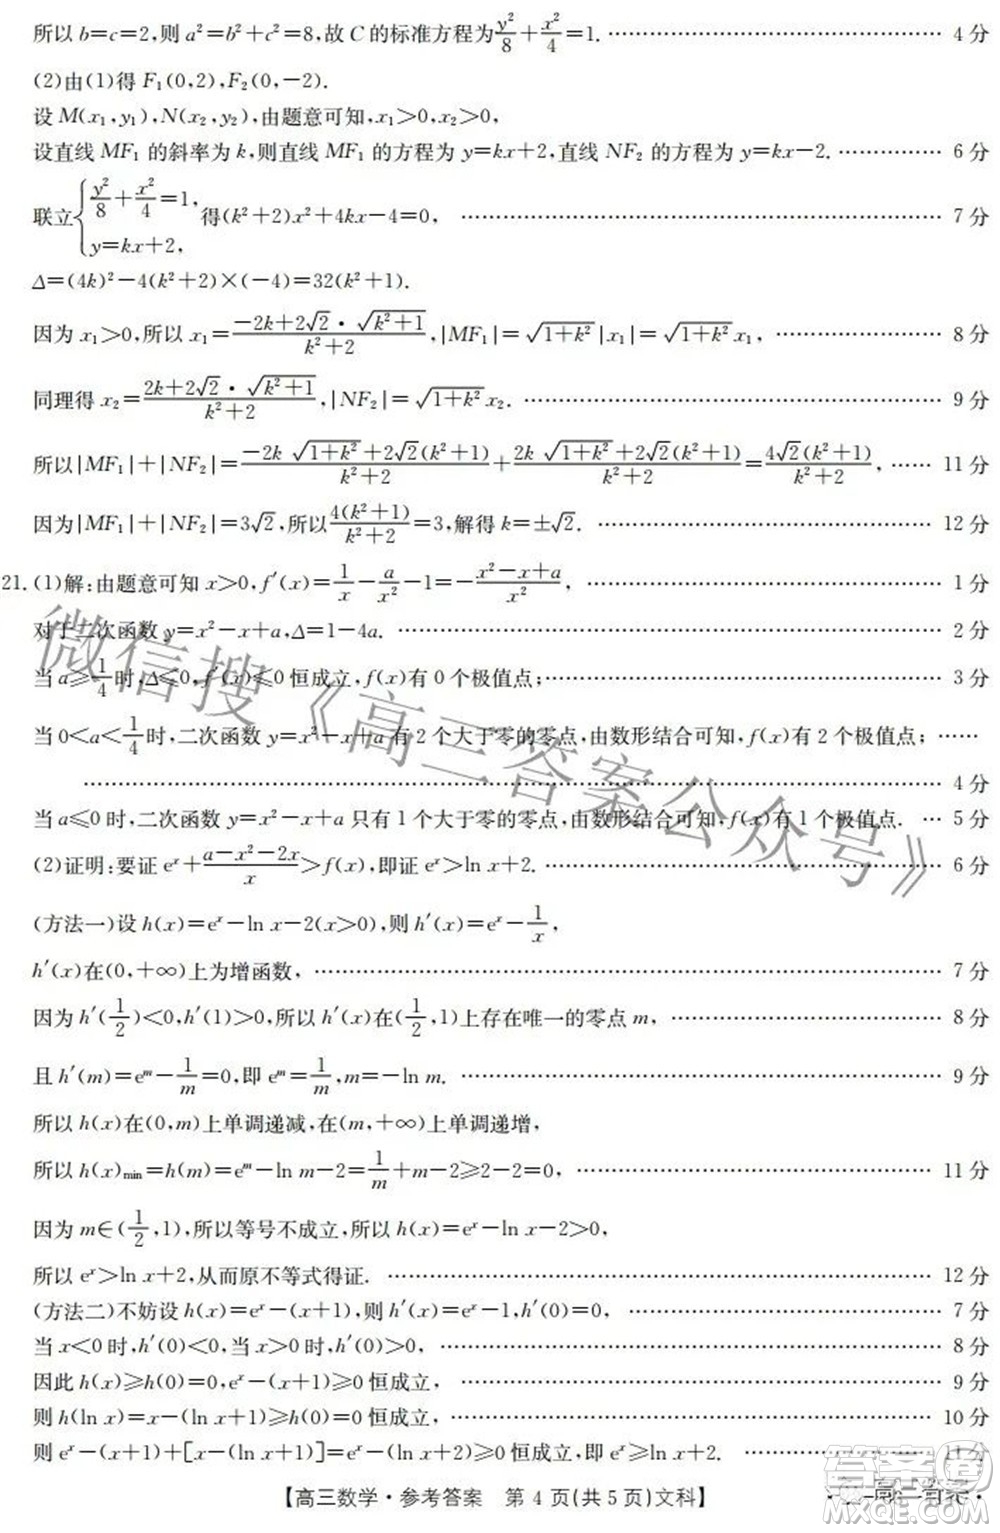 所以 b=c=2,则 a²=b²+c²=8,故 C 的标准方程为 y²/8+x²/4=1. …… 4 分
(2)由(1)得 F₁(0,2),F₂(0,-2).
设 M(x₁,y₁),N(x₂,y₂),由题意可知,x₁>0,x₂>0,
设直线 MF₁ 的斜率为 k,则直线 MF₁ 的方程为 y=kx+2,直线 NF₂ 的方程为 y=kx-2. …… 6 分
联立{y²/8+x²/4=1, y=kx+2, 得(k²+2)x²+4kx-4=0, …… 7 分
Δ=(4k)²-4(k²+2)×(-4)=32(k²+1).
因为 x₁>0,所以 x₁=(-2k+2√2·√(k²+1))/(k²+2),|MF₁|=√(1+k²)|x₁|=√(1+k²)x₁, …… 8 分
同理得 x₂=(2k+2√2·√(k²+1))/(k²+2),|NF₂|=√(1+k²)x₂. …… 9 分
所以|MF₁|+|NF₂|=(-2k√(1+k²)+2√2(k²+1))/(k²+2)+(2k√(1+k²)+2√2(k²+1))/(k²+2)=4√2(k²+1)/(k²+2), …… 11 分
因为|MF₁|+|NF₂|=3√2,所以 4(k²+1)/(k²+2)=3,解得 k=±√2. …… 12 分
21.(1)解:由题意可知 x>0,f′(x)=1/x-a/x²-1=-(x²-x+a)/x², …… 1 分
对于二次函数 y=x²-x+a,Δ=1-4a. …… 2 分
当 a≥1/4 时,Δ≤0,f′(x)≤0 恒成立,f(x)有 0 个极值点; …… 3 分
当 0<a<1/4 时,二次函数 y=x²-x+a 有 2 个大于零的零点,由数形结合可知,f(x)有 2 个极值点; ……
…… 4 分
当 a≤0 时,二次函数 y=x²-x+a 只有 1 个大于零的零点,由数形结合可知,f(x)有 1 个极值点. … 5 分
(2)证明:要证 eˣ+(a-x²-2x)/x>f(x),即证 eˣ>ln x+2. …… 6 分
(方法一)设 h(x)=eˣ-ln x-2(x>0),则 h′(x)=eˣ-1/x,
h′(x)在(0,+∞)上为增函数, …… 7 分
因为 h′(1/2)<0,h′(1)>0,所以 h′(x)在(1/2,1)上存在唯一的零点 m, …… 8 分
且 h′(m)=eᵐ-1/m=0,即 eᵐ=1/m,m=-ln m. …… 9 分
所以 h(x)在(0,m)上单调递减,在(m,+∞)上单调递增,
所以 h(x)min=h(m)=eᵐ-ln m-2=1/m+m-2≥2-2=0, …… 11 分
因为 m∈(1/2,1),所以等号不成立,所以 h(x)=eˣ-ln x-2>0,
所以 eˣ>ln x+2,从而原不等式得证. …… 12 分
(方法二)不妨设 h(x)=eˣ-(x+1),则 h′(x)=eˣ-1,h′(0)=0, …… 7 分
当 x<0 时,h′(0)<0,当 x>0 时,h′(0)>0, …… 8 分
因此 h(x)≥h(0)=0,eˣ-(x+1)≥0 恒成立, …… 9 分
则 h(ln x)=x-(ln x+1)≥h(0)=0 恒成立, …… 10 分
则 eˣ-(x+1)+[x-(ln x+1)]=eˣ-(ln x+2)≥0 恒成立,即 eˣ≥ln x+2. …… 11 分
【高三数学·参考答案 第 4 页(共 5 页)文科】
微信搜《高三答案公众号》
答案圈
MXQE.COM